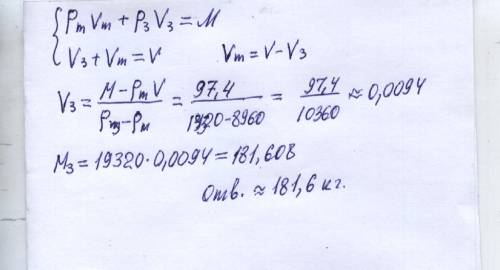 {ρₘVₘ + ρ₃V₃ = M
V₃ + Vₘ = V Vₘ = V - V₃
V₃ = (M - ρₘV)/(ρ₃ - ρₘ) = 97,4/(19320 - 8960) = 97,4/10360 ≈ 0,0094
M₃ = 19320 · 0,0094 = 181,608
Отв. ≈ 181,6 кг.